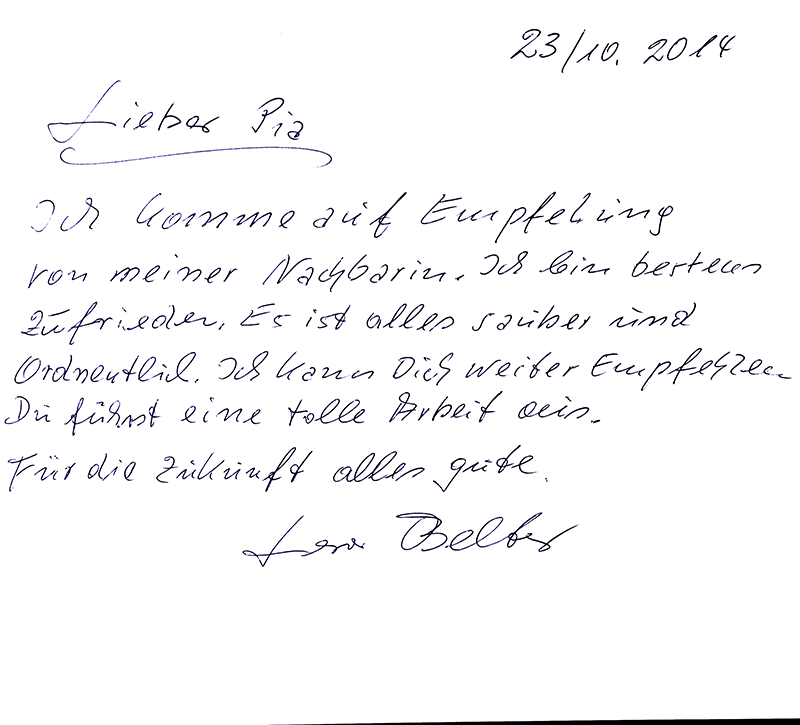 23/10. 2014
Lieber Pia
Ich komme auf Empfehlung
von meiner Nachbarin. Ich bin bestens
Zufrieden. Es ist alles sauber und
Ordnentlich. Ich kann Dich weiter Empfehlen
Du führst eine tolle Arbeit aus.
Für die Zukunft alles gute.